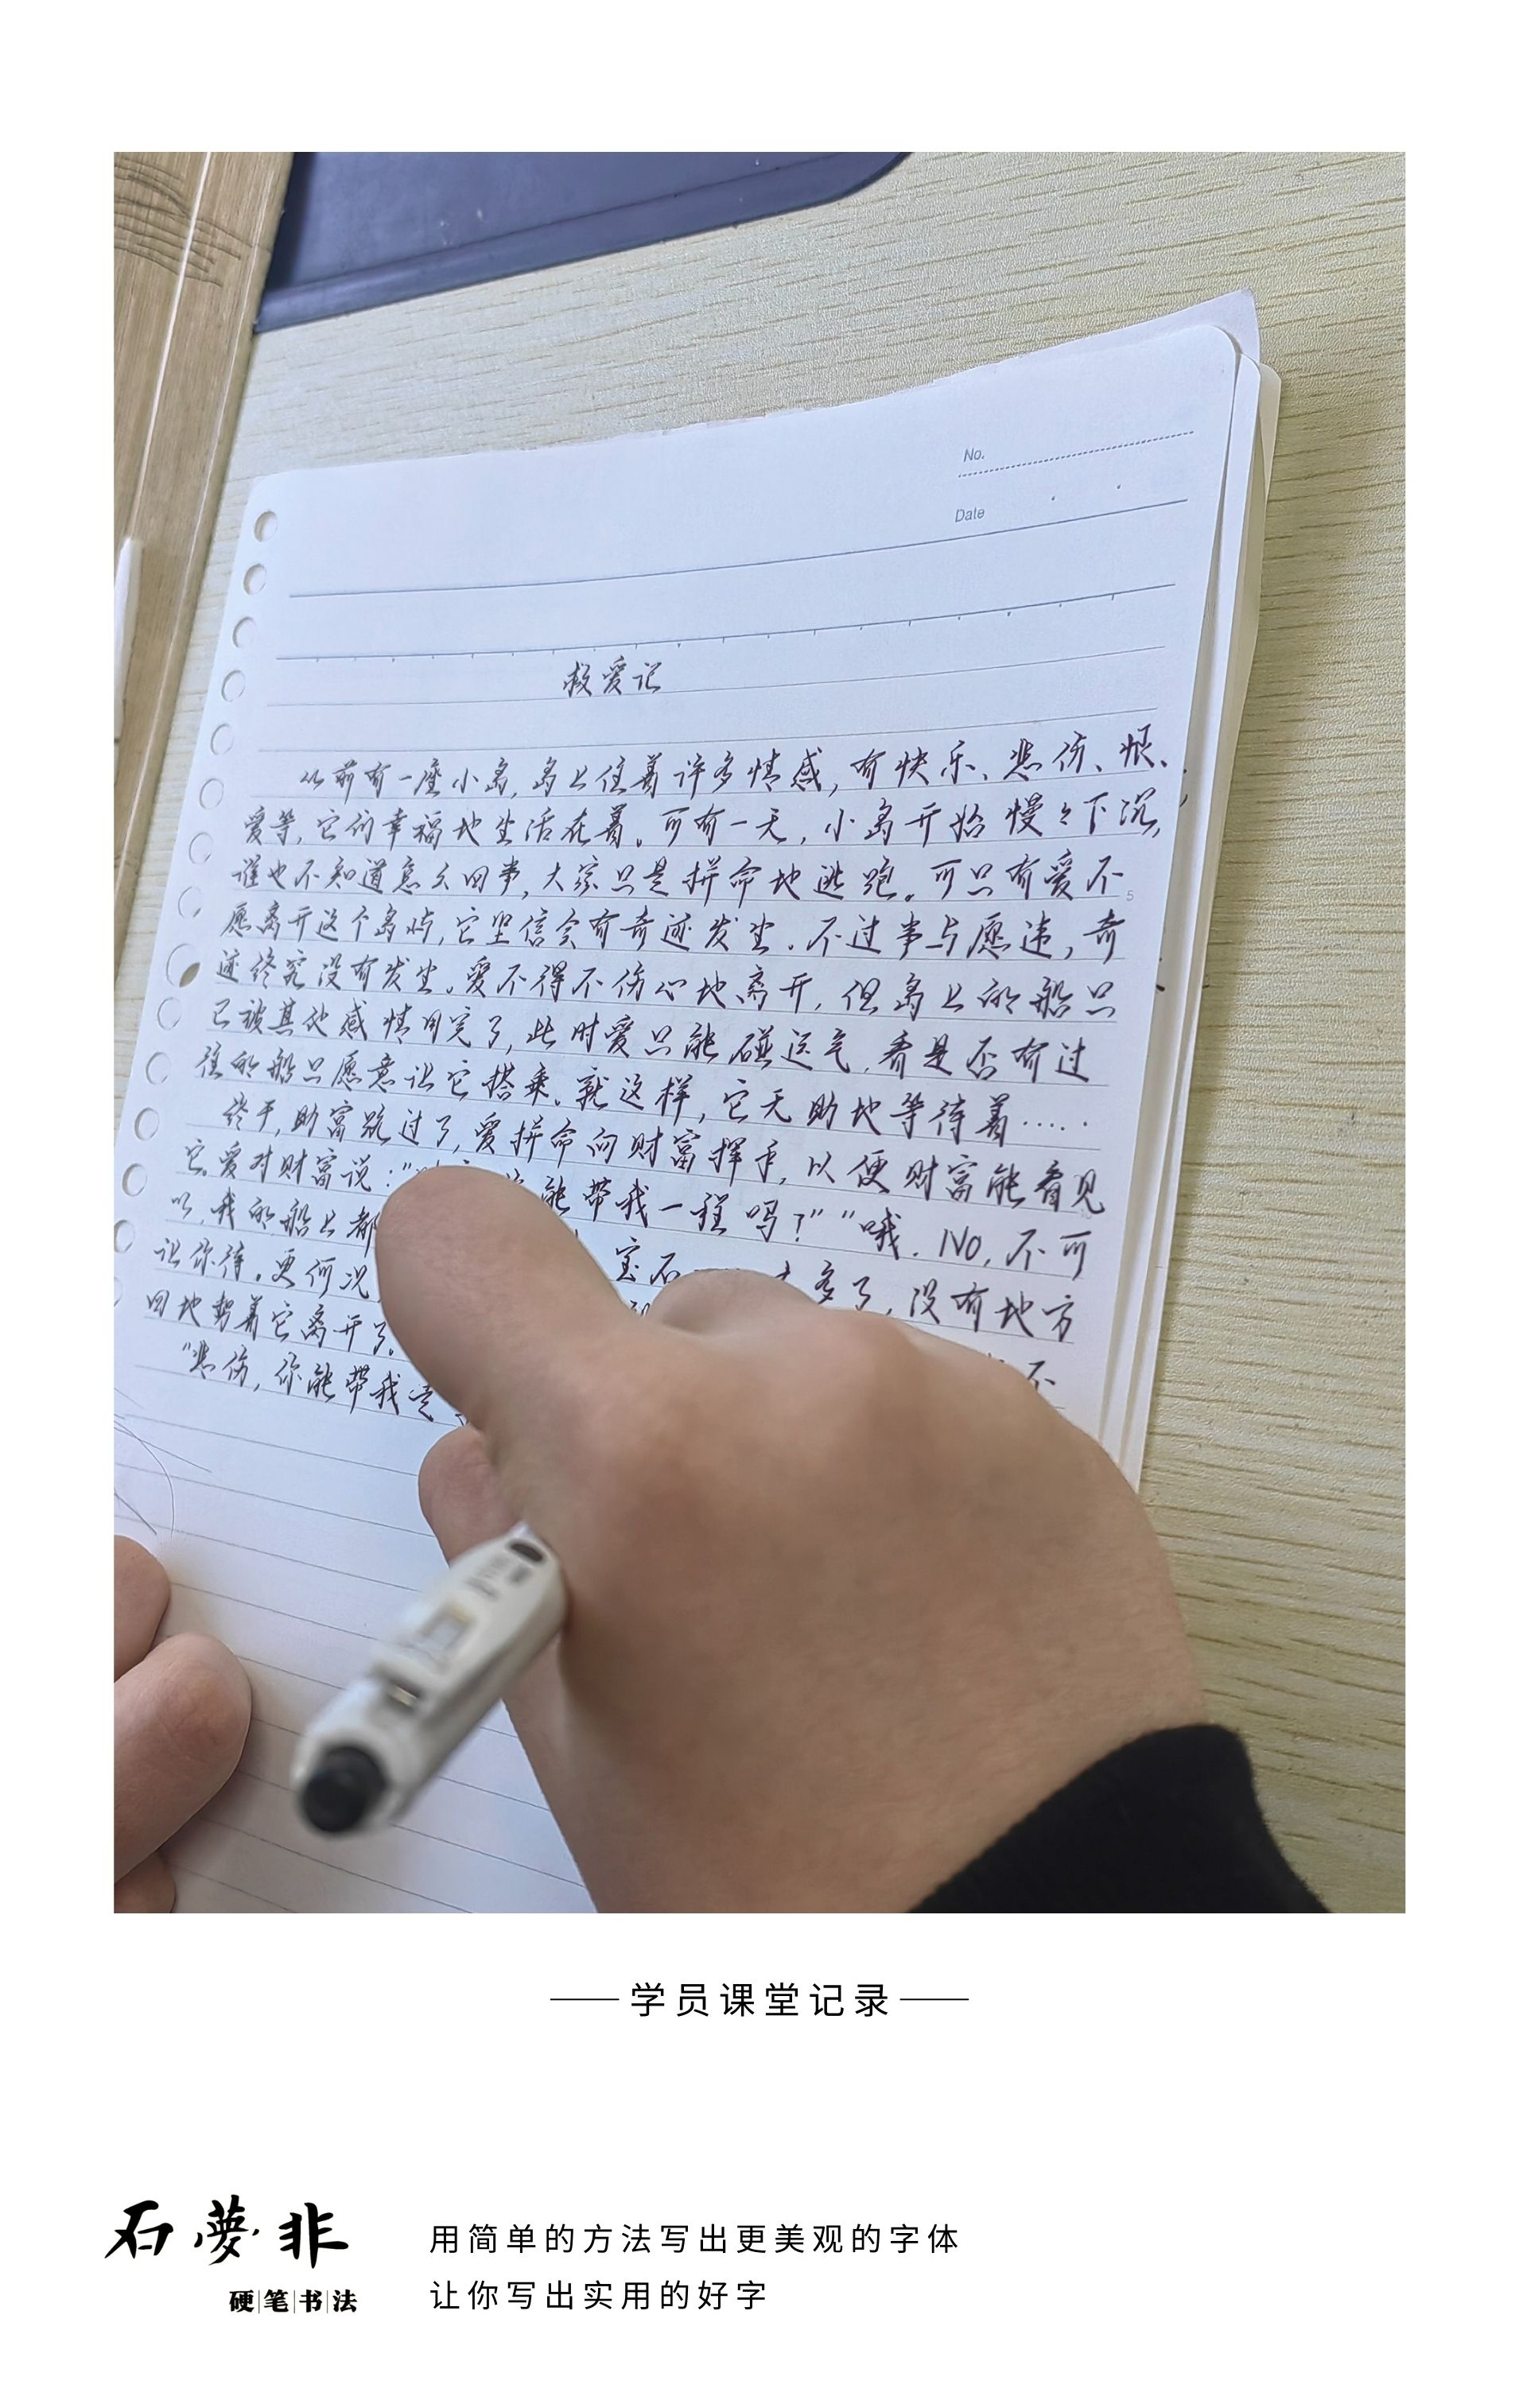 No.
Date
救爱记
从前有一座小岛,岛上住着许多情感,有快乐、悲伤、恨、
爱等,它们幸福地生活在着。可有一天,小岛开始慢々下沉,
谁也不知道怎么回事,大家只是拼命地逃跑。可只有爱不
5
愿离开这个岛屿,它坚信会有奇迹发生.不过事与愿违,奇
迹终究没有发生。爱不得不伤心地离开,但岛上的船只
已被其他感情用完了,此时爱只能碰运气.看是否有过
往的船只愿意让它搭乘.就这样,它无助地等待着……
终于,财富路过了,爱拼命向财富挥手,以便财富能看见
它.爱对财富说:“能带我一程吗?”“哦.No,不可
以,我的船上都宝石多了,没有地方
让你待.更何况不
回地努着它离开了.
“悲伤,你能带我
学员课堂记录
石夢非
硬笔书法
用简单的方法写出更美观的字体
让你写出实用的好字